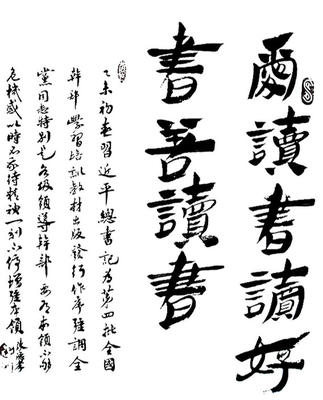 愛讀書讀好
書善讀書
乙未初春習近平總書記為第四批全國
幹部學習培訓教材出版發行作序強調全
黨同志特別是各級領導幹部要有本領不夠
危機感以時不我待精神一刻不停增強本領